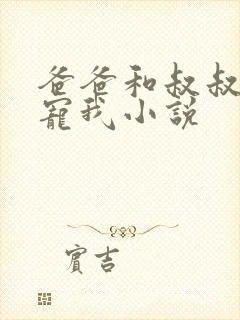 爸爸和叔叔
寵我小說
賓吉